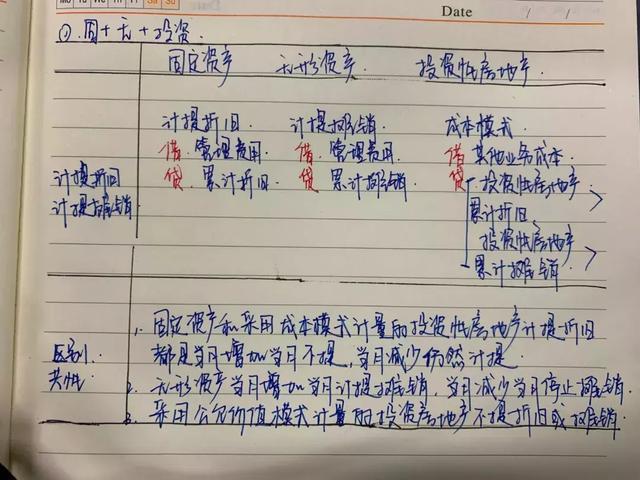 Mo Tu We Th Fr Sa Su
Date
① 固+无+投资
固定资产 无形资产 投资性房地产
计提折旧 计提摊销 成本模式
借 管理费用 借 管理费用 借 其他业务成本
计提折旧 贷 累计折旧 贷 累计摊销 贷 投资性房地产
计提摊销 累计折旧、
投资性房地产
累计摊销
1. 固定资产和采用成本模式计量的投资性房地产计提折旧
区别、 都是当月增加当月不提,当月减少仍然计提.
共性 2. 无形资产当月增加当月计提摊销,当月减少当月停止摊销.
3. 采用公允价值模式计量的投资房地产不提折旧或摊销.